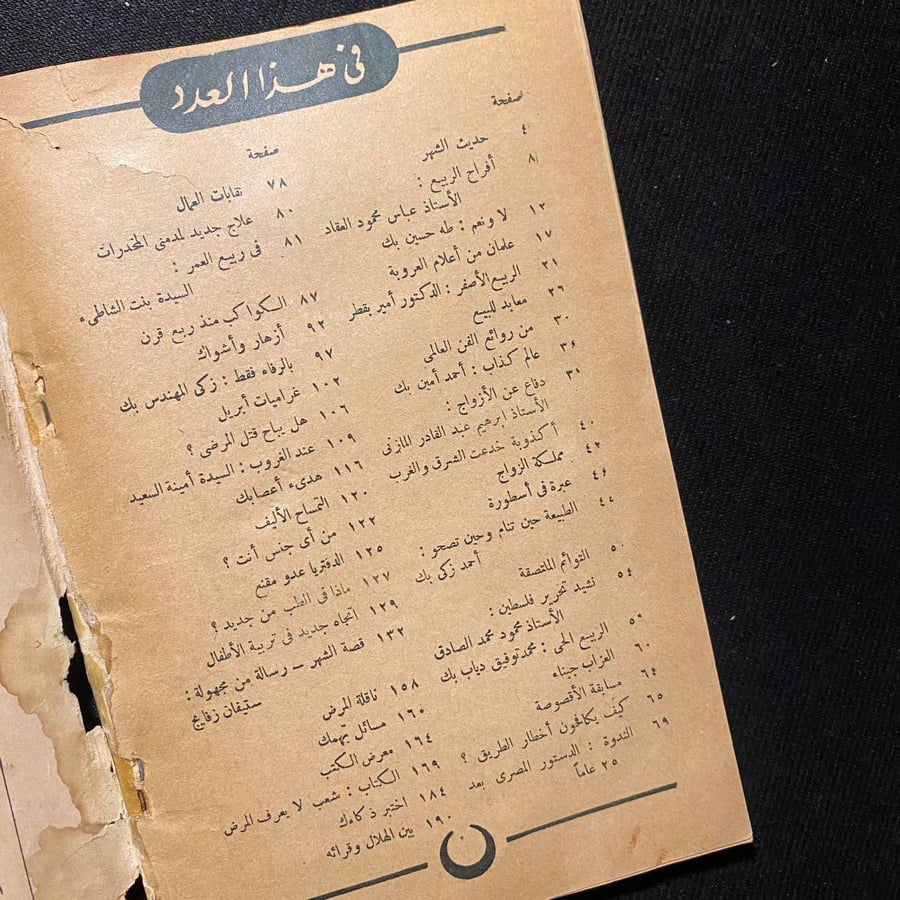 في هذا العدد
صفحة
٤ حديث الشهر
٨ أفراح الربيع :
الأستاذ عباس محمود العقاد
١٢ لا ونعم : طه حسين بك
١٧ علمان من أعلام العروبة
٢١ الربيع الأصفر : الدكتور أمير بقطر
٢٦ معابد للبيع
٣٠ من روائع الفن العالمى
٣٤ عالم كذاب : أحمد أمين بك
دفاع عن الأزواج :
الأستاذ ابراهيم عبد القادر المازنى
٤٠ أكذوبة خدعت الشرق والغرب
٤٣ مملكة الزواج
٤٦ عبرة فى أسطورة
٤٧ الطبيعة حين تنام وحين تصحو :
أحمد زكى بك
٥٠ التوائم الملتصقة
٥٤ نشيد تحرير فلسطين :
الأستاذ محمود محمد الصادق
الربيع الحى : محمد توفيق دياب بك
٦٠ الغراب جبناء
٦٤ مسابقة الأقصوصة
٦٥ كيف يكافحون أخطار الطريق ؟
٦٩ الندوة : الدستور المصرى بعد
٢٥ عاماً
صفحة
٧٨ نقابات العمال
٨٠ علاج جديد لمدمنى المخدرات
٨١ فى ربيع العمر :
السيدة بنت الشاطىء
٨٧ الكواكب منذ ربع قرن
٩٢ أزهار وأشواك
٩٧ بالرفاء فقط : زكى المهندس بك
١٠٢ غراميات أبريل
١٠٦ هل يباح قتل المرضى ؟
١٠٩ عند الغروب : السيدة أمينة السعيد
١١٦ هدىء أعصابك
١٢٠ التمساح الأليف
١٢٢ من أى جنس أنت ؟
١٢٥ الدفتريا عدو مقنع
١٢٧ ماذا فى الطب من جديد ؟
١٢٩ اتجاه جديد فى تربية الأطفال
١٣٢ قصة الشهر ــ رسالة من مجهولة :
ستيفان زفايج
١٥٨ ناقلة المرض
١٦٠ مسائل تهمك
١٦٤ معرض الكتب
١٦٩ الكتاب : شعب لا يعرف المرض
١٨٤ اختبر ذكاءك
١٩٠ بين الهلال وقرائه